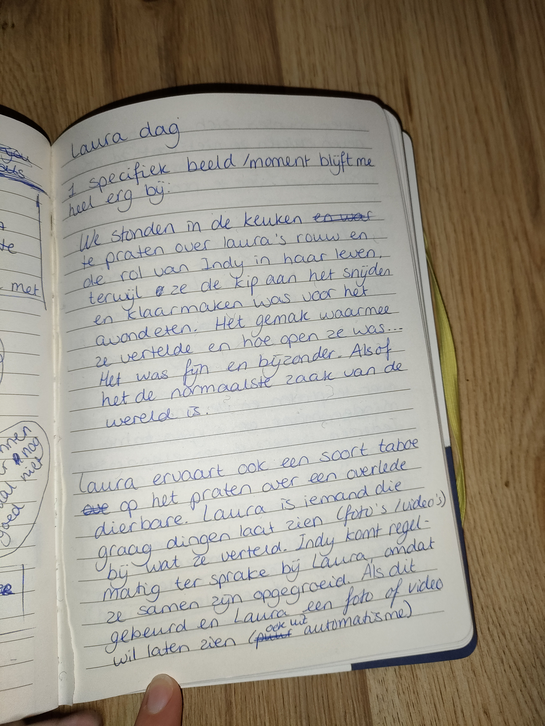 laura dag
1 specifiek beeld /moment blijft me
heel erg bij:
We stonden in de keuken en was
te praten over laura's rouw en
de rol van Indy in haar leven,
terwijl ze de kip aan het snijden
en klaarmaken was voor het
avondeten. Het gemak waarmee
ze vertelde en hoe open ze was...
Het was fijn en bijzonder. Alsof
het de normaalste zaak van de
wereld is.
Laura ervaart ook een soort taboe
op het praten over een overlede
dierbare. Laura is iemand die
graag dingen laat zien (foto's /video's)
bij wat ze verteld. Indy komt regel-
matig ter sprake bij Laura, omdat
ze samen zijn opgegroeid. Als dit
gebeurd en Laura een foto of video
wil laten zien (ook uit automatisme)
met
nog
niet
goed